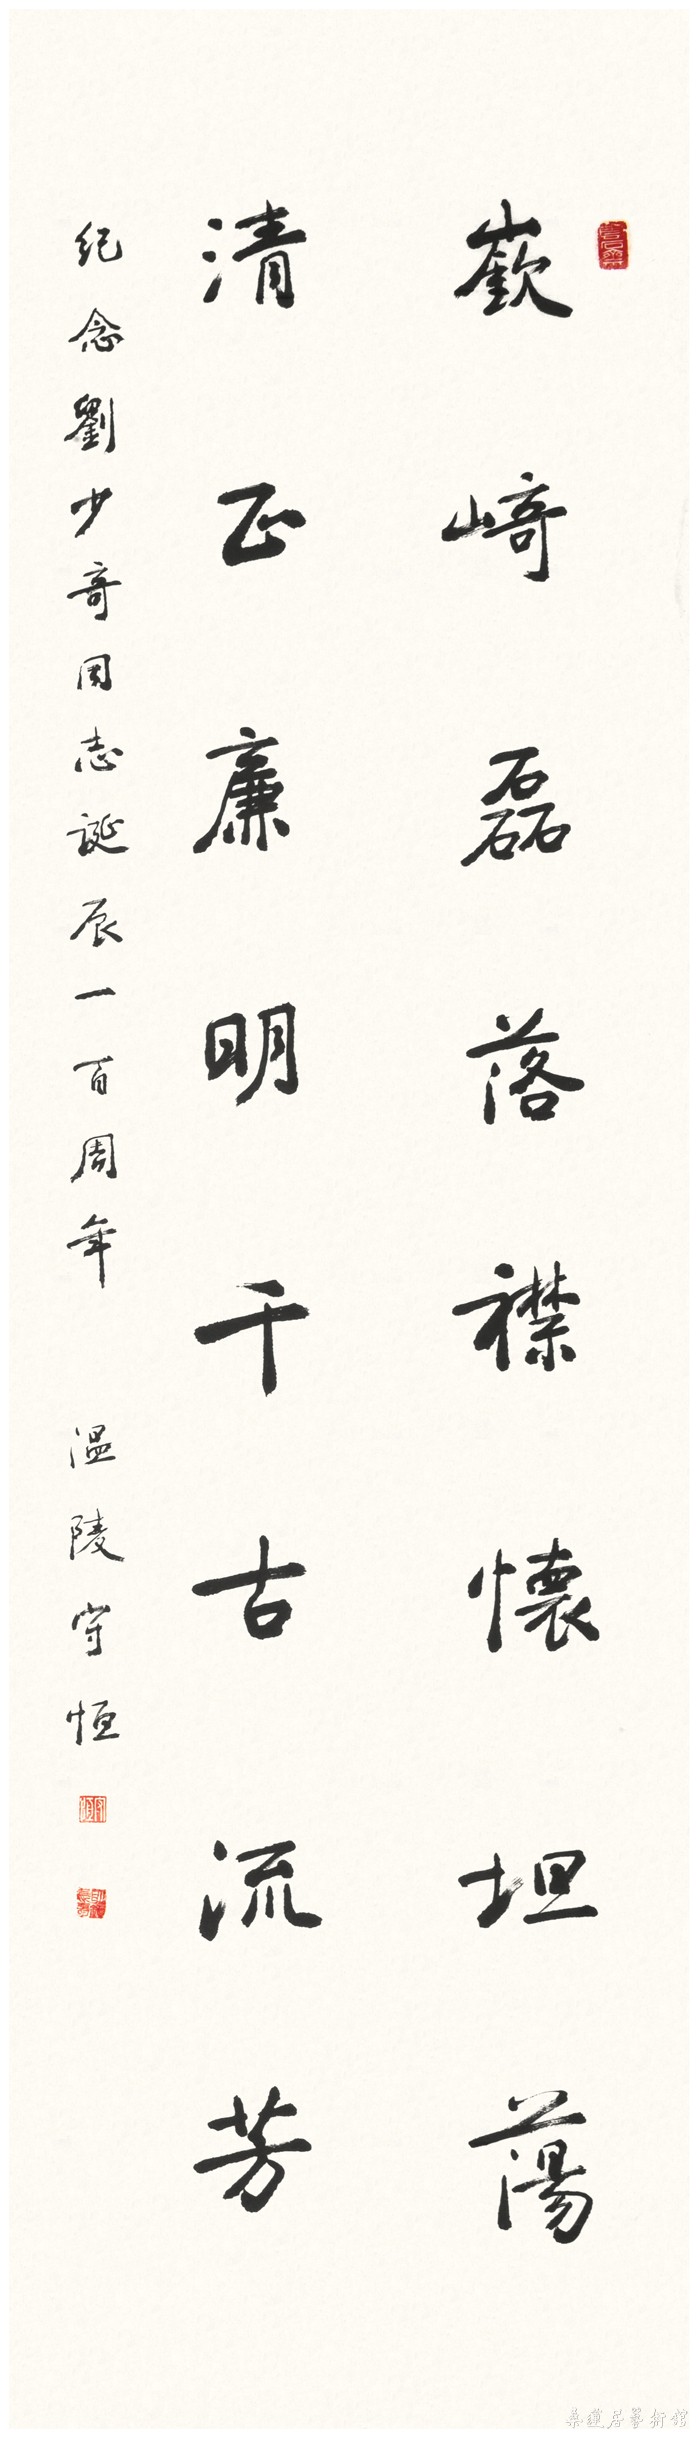 嶔崎磊落襟懷坦蕩
清正廉明千古流芳
紀念劉少奇同志誕辰一百周年 温陵守恒
桑蓮居藝術館